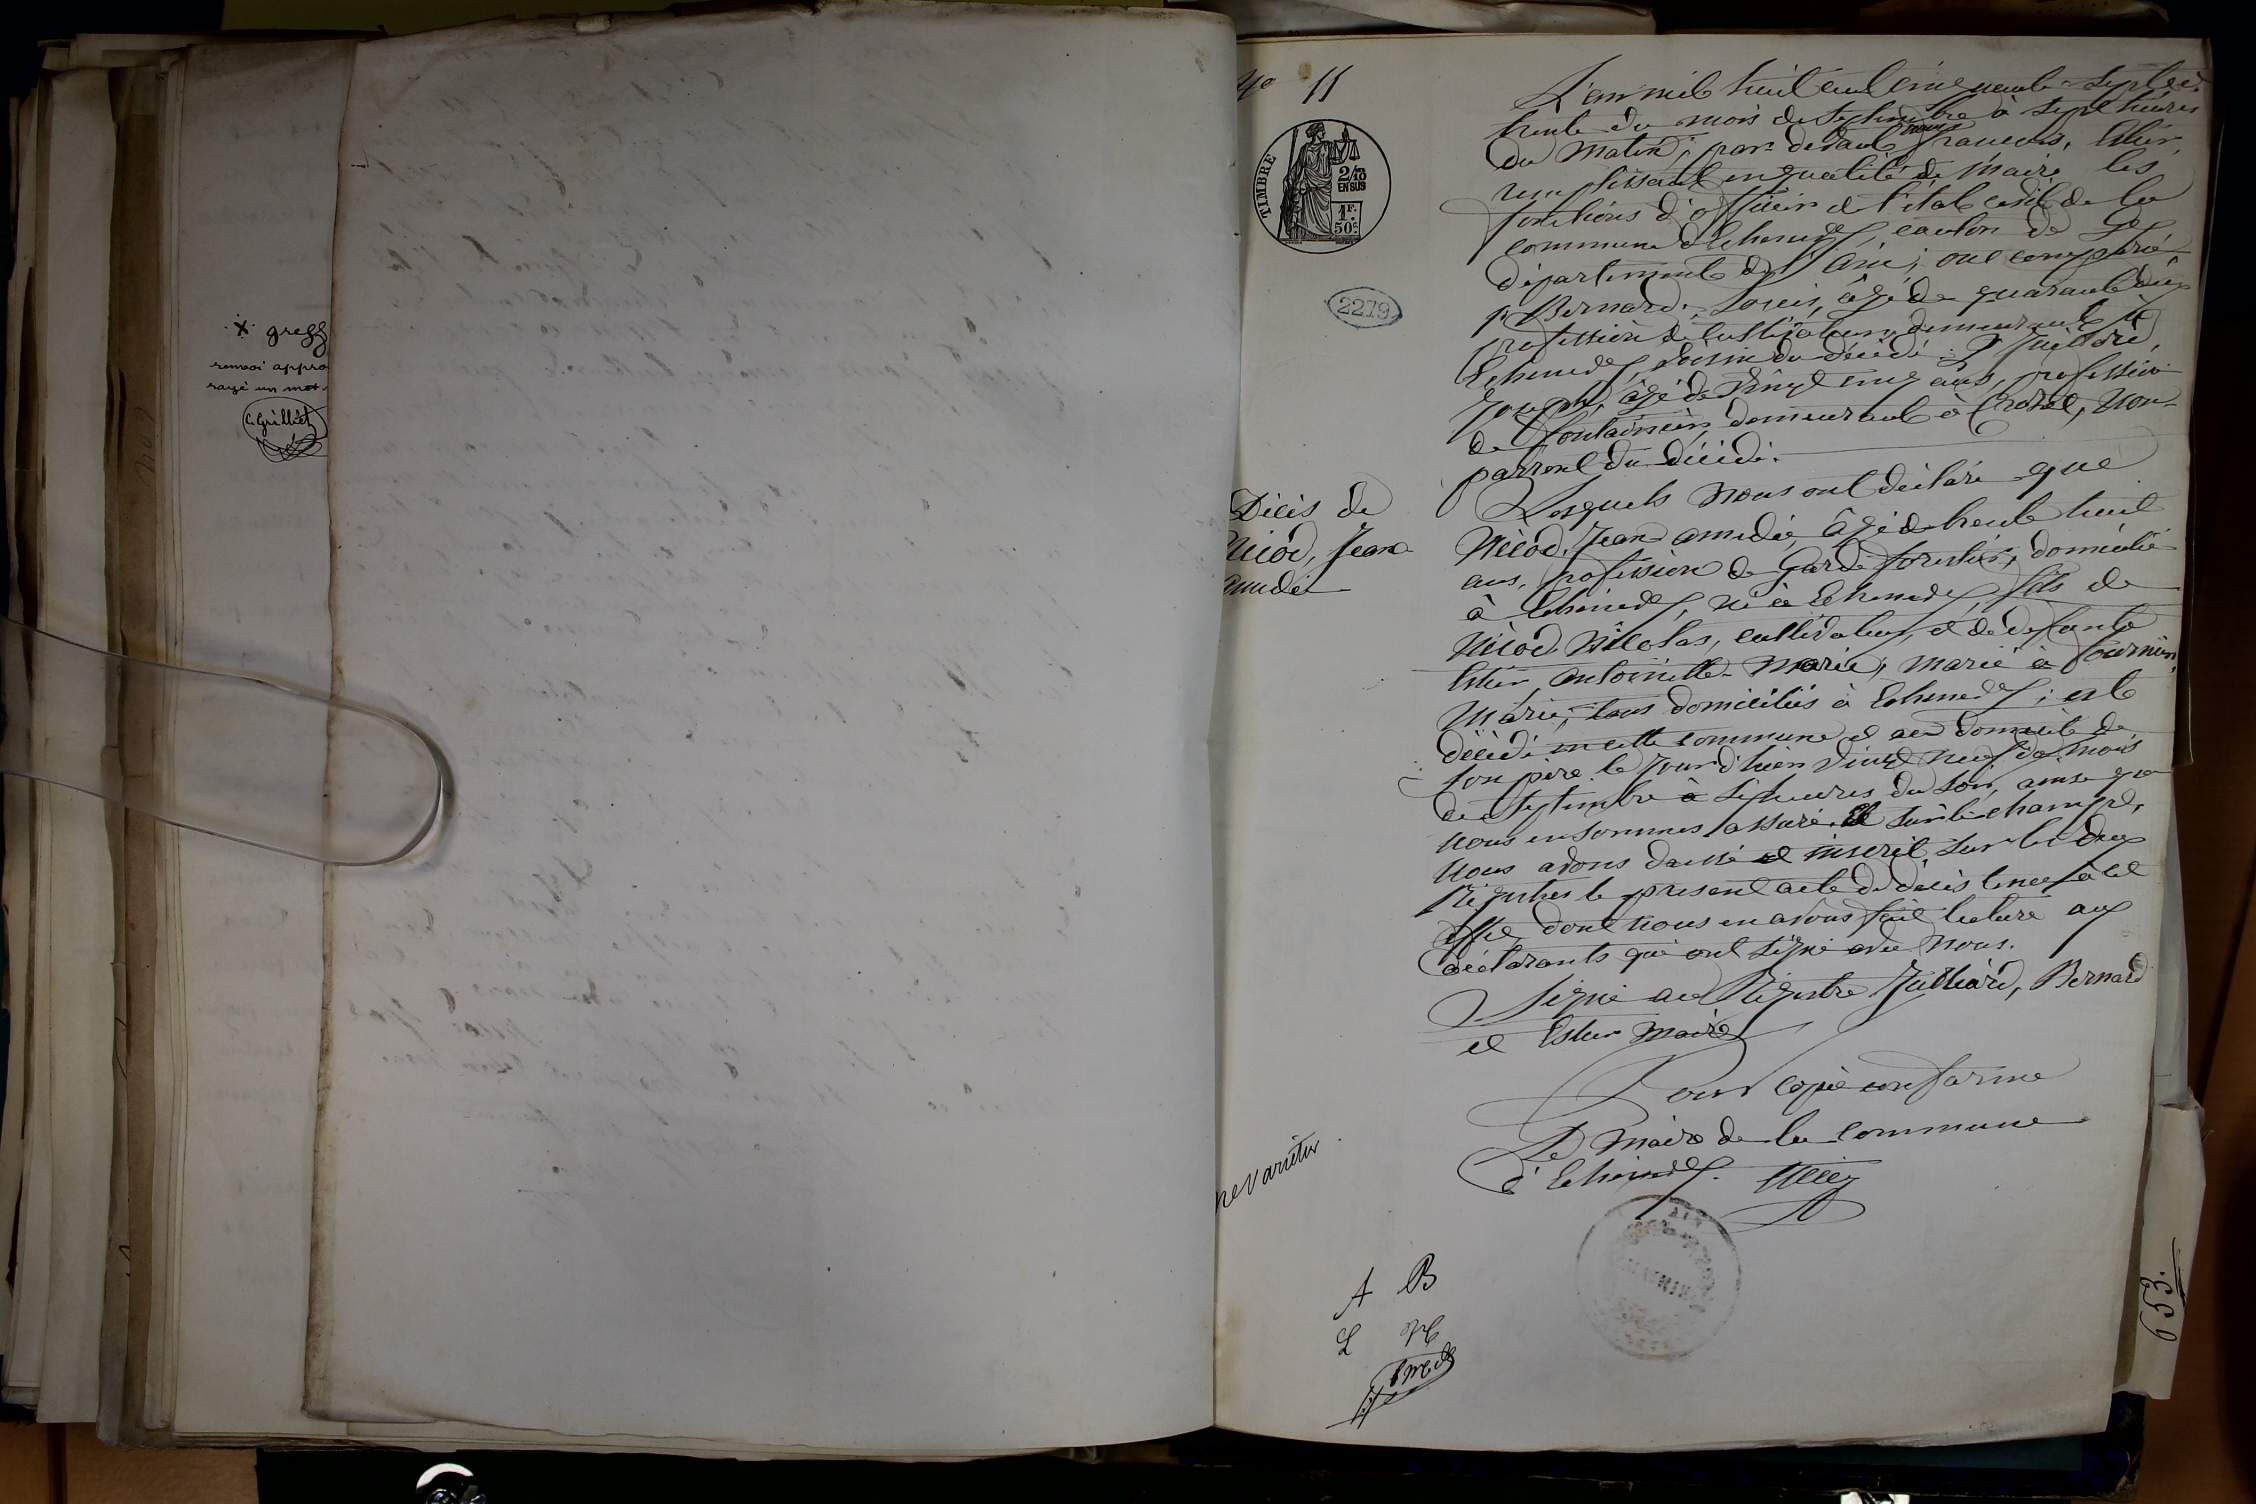 X greff
renvoi appro
rayé un mot
C. Grilliet
No 11
TIMBRE
2/10
EN SUS
1F.
50c
2279
Décis de
Nicod, Jean
amédé
L'an mil huit cent cinquante sept le
trente du mois de septembre à sept heures
du matin; par devant nous François, Ester,
remplissant en qualité de Maire les
fonctions d'officier de l'état civil de la
commune d'Echenevex, canton de Gex
département de l'Ain; ont comparu
1o Bernard, Louis, âgé de quarante deux
profession de cultivateur demeurant à
Echenevex, voisin du décédé; 2o Julliard,
Joseph, âgé de vingt cinq ans, profession
de fontainier, demeurant à Crozet, non-
parrent du décédé.
Lesquels nous ont déclaré que
Nicod, Jean amédé, âgé de trente huit
ans, profession de Garde forestier, domicilié
à Echenevex, né à Echenevex fils de
Nicod Nicolas, cultivateur, et de défunte
Ester Antoinette Marie, marié à Fournier,
Marie, tous domiciliés à Echenevex; est
décédé en cette commune et au domicile de
son père le jour d'hier vingt neuf du mois
de septembre à six heures du soir, ainsi que
nous en sommes assuré. Et sur le champ,
nous avons dressé et inscrit sur les deux
Régistres le présent acte de décès tenus à cet
effet, dont nous en avons fait lecture aux
déclarants qui ont signé avec nous.
Signé au Régistre Julliard, Bernard
et Ester Maire
Pour copie conforme
Le Maire de la commune
d'Echenevex.
ne varietur
A B
L
AIN
653.